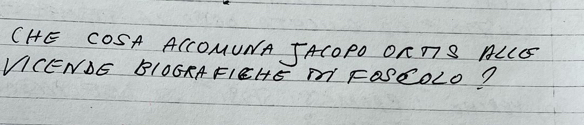 CHE COSA ACCOMUNA JACOPO ORTIS ALLE
VICENDE BIOGRAFICHE DI FOSCOLO?